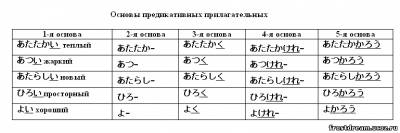 Основы предикативных прилагательных
1-я основа 2-я основа 3-я основа 4-я основа 5-я основа
あたたかい теплый あたたか- あたたかく あたたかけれ- あたたかかろう
あつい жаркий あつ- あつく あつけれ- あつかろう
あたらしい новый あたらし- あたらしく あたらしけれ- あたらしかろう
ひろい просторный ひろ- ひろく ひろけれ- ひろかろう
よい хороший よ- よく よけれ- よかろう
frostdream.ucoz.ru